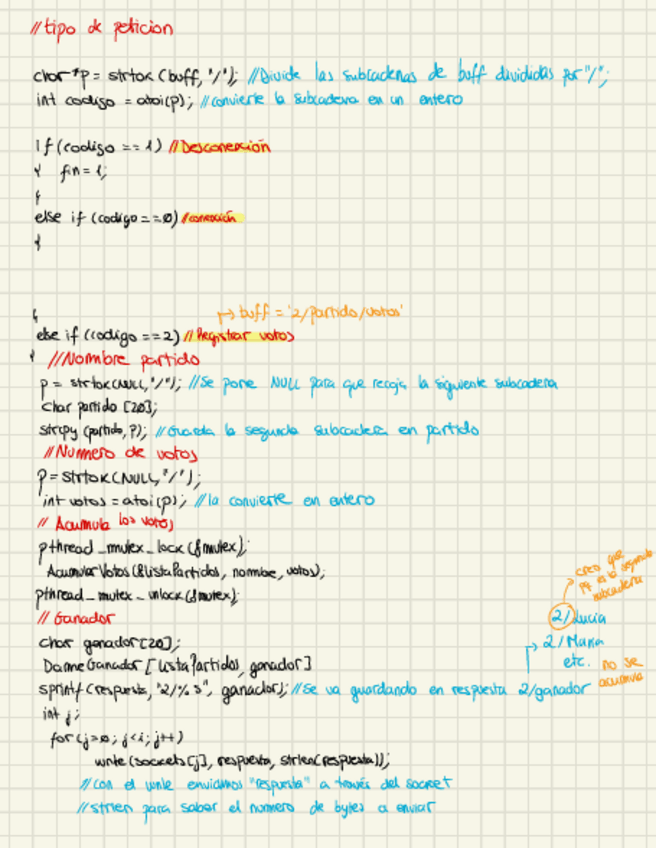 //tipo de peticion
char *p = strtok (buff, "/"); //Divide las subcadenas de buff divididas por "/";
int codigo = atoi(p); //convierte la subcadena en un entero
if (codigo == 1) //Desconexión
{ fin = 1;
}
else if (codigo == 0) //conexión
{
}
↦ buff = '2/partido/votos'
else if (codigo == 2) //Registrar votos
{ //Nombre partido
p = strtok(NULL, "/"); //Se pone NULL para que recoja la siguiente subcadena
char partido [20];
strcpy (partido, p); //Guarda la segunda subcadena en partido
//Numero de votos
p = strtok(NULL, "/");
int votos = atoi(p); //la convierte en entero
// Acumula los votos
pthread_mutex_lock (&mutex);
AcumularVotos (&listaPartidos, nombre, votos);
pthread_mutex_unlock (&mutex);
// Ganador
char ganador [20];
DameGanador [listaPartidos, ganador]
sprintf (respuesta, "2/%s", ganador); //Se va guardando en respuesta 2/ganador
creo que
es la segunda
subcadena
2/Lucia
2/Maria
etc.
no se
acumula
int j;
for (j=0; j<i; j++)
write (sockets[j], respuesta, strlen(respuesta));
//con el write enviamos "respuesta" a través del socket
//strlen para saber el numero de bytes a enviar